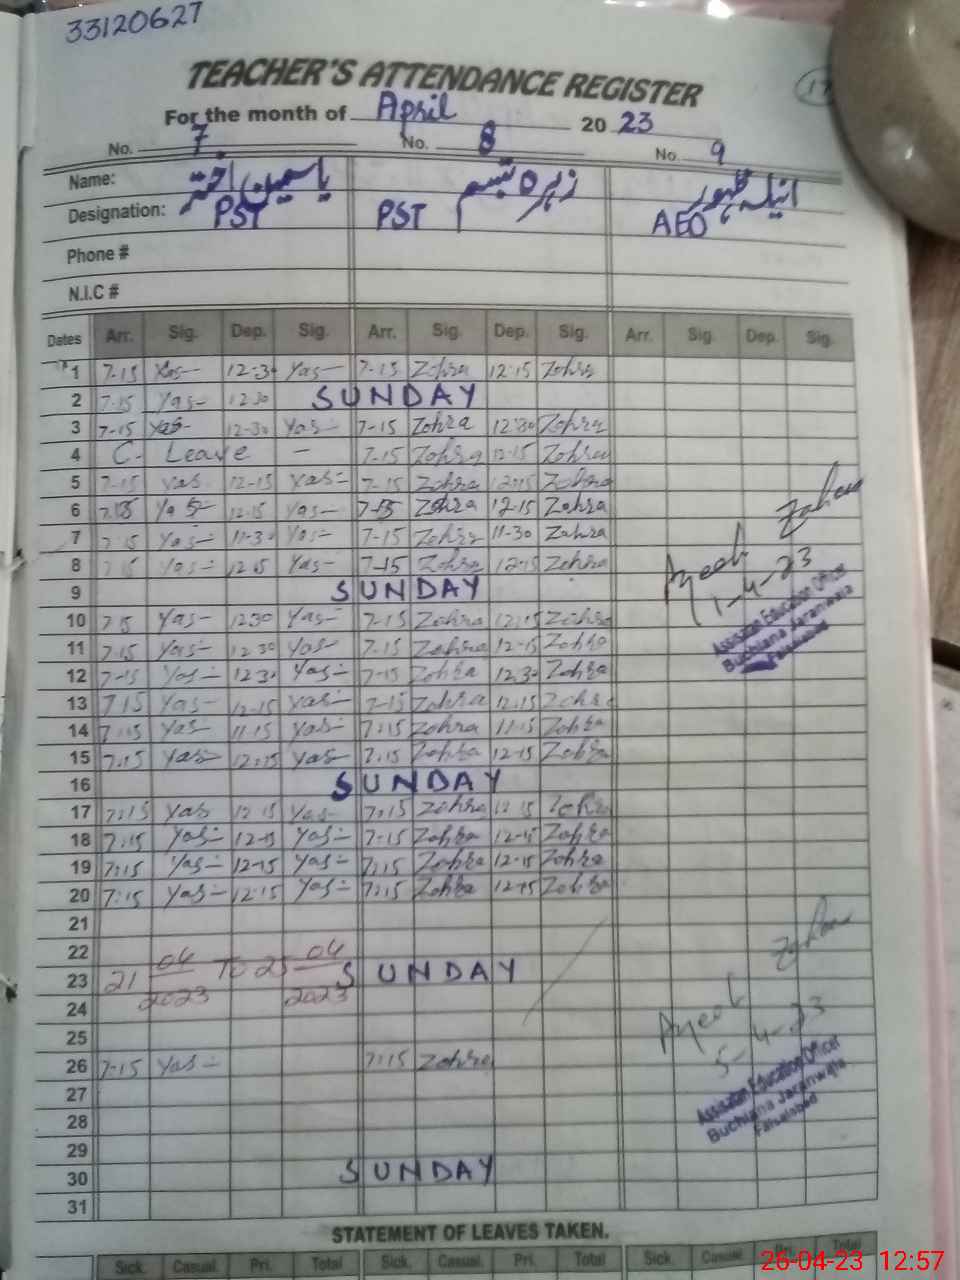 33120627
TEACHER'S ATTENDANCE REGISTER
For the month of April 2023
No. 7. No. 8 No. 9
Name: یاسمین اختر زہرہ تبسم انیلہ ظہور
Designation: PST PST AEO
Phone #
N.I.C #
Dates Arr. Sig. Dep. Sig. Arr. Sig. Dep. Sig. Arr. Sig. Dep. Sig.
1 7-15 Yas- 12-30 Yas- 7-15 Zohra 12-15 Zohra
2 7-15 Yas- 1230 SUNDAY
3 7-15 Yas- 12-30 Yas- 7-15 Zohra 12-30 Zohra
4 C. Leave - 7-15 Zohra 12-15 Zohra
5 7-15 Yas 12-15 Yas- 7-15 Zohra 12-15 Zohra
6 7-15 Yas- 12-15 Yas- 7-15 Zohra 12-15 Zohra
7 7-15 Yas- 11-30 Yas- 7-15 Zohra 11-30 Zohra
8 7-15 Yas- 12-15 Yas- 7-15 Zohra 12-15 Zohra
9 SUNDAY
10 7-15 Yas- 1230 Yas- 7-15 Zohra 12-15 Zohra
11 7-15 Yas- 12-30 Yas- 7-15 Zohra 12-15 Zohra
12 7-15 Yas- 12-30 Yas- 7-15 Zohra 12-30 Zohra
13 7-15 Yas- 12-15 Yas- 7-15 Zohra 12-15 Zohra
14 7-15 Yas- 11-15 Yas- 7-15 Zohra 11-15 Zohra
15 7-15 Yas- 12-15 Yas- 7-15 Zohra 12-15 Zohra
16 SUNDAY
17 7-15 Yas 12-15 Yas- 7-15 Zohra 12-15 Zohra
18 7-15 Yas- 12-15 Yas- 7-15 Zohra 12-15 Zohra
19 7-15 Yas- 12-15 Yas- 7-15 Zohra 12-15 Zohra
20 7-15 Yas- 12-15 Yas- 7-15 Zohra 12-15 Zohra
21
22
23 21 04/2023 To 25 04/2023 SUNDAY
24
25
26 7-15 Yas- 7-15 Zohra
27
28
29
30 SUNDAY
31
1-4-23
Assistant Education Officer
Buchiana Jaranwala
Faisalabad
5-4-23
Assistant Education Officer
Buchiana Jaranwala
Faisalabad
STATEMENT OF LEAVES TAKEN.
Sick. Casual. Pri. Total Sick. Casual. Pri. Total Sick. Casual. Pri. Total
26-04-23 12:57